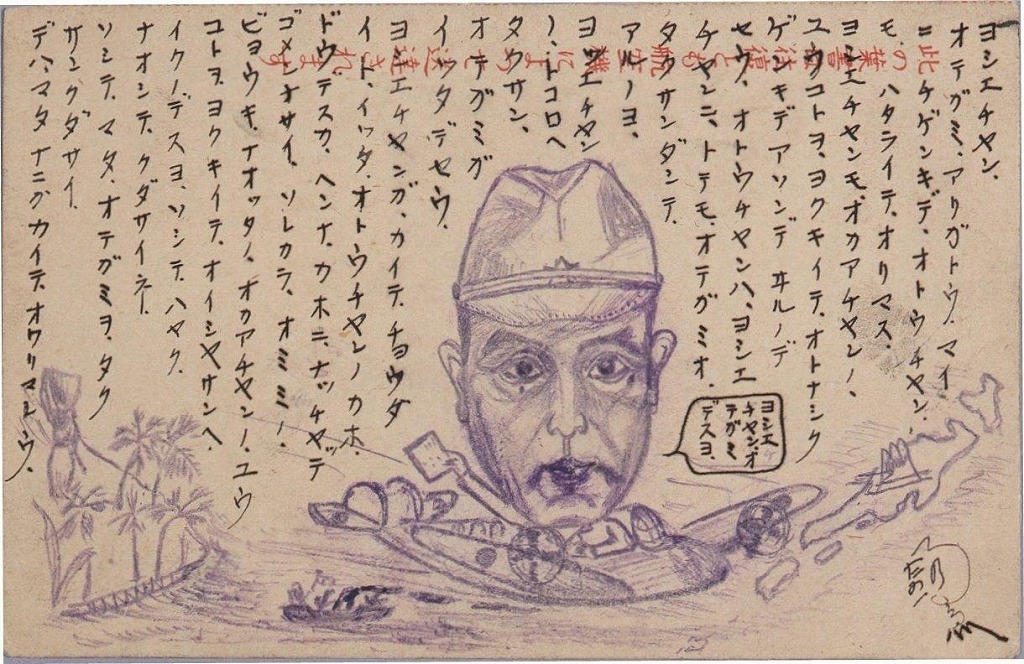 ヨシエチヤン。
オテガミ、アリガトウ。マイ
ニチゲンキデ、オトウチヤン
モ、ハタライテ、オリマス。
ヨシエチヤンモ、オカアチヤンノ
ユウコトヲ、ヨクキイテ、オトナシク
ゲンキデアソンデ ヰルノデ
セウ。オトウチヤンハ、ヨシエ
チヤンニ、トテモ、オテガミオ、
タクサンダシテ、
アルノヨ、
ヨシエチヤン
ノ、トコロヘ
タクサン、
オテガミガ
イツタデセウ。
ヨシエチヤンガ、カイテ、チヨウダ
イト、イツタ、オトウチヤンノカホ、
ドウデスカ、ヘンナ、カホニ、ナツチヤツテ
ゴメンナサイ。ソレカラ、オミミノ
ビヨウキ、ナオツタノ、オカアチヤンノ、ユウ
コトヲヨクキイテ、オイシヤサンヘ
イクノデスヨ、ソシテ、ハヤク、
ナオシテ、クダサイネー
ソシテ、マタ、オテガミヲ、タク
サン、クダサイ。
デハ、マタナニカカイテ、オクリマセウ。
此の葉書は往復とも
航空機によつて送達されます
ヨシエ
チヤンノオ
テガミ
デスヨ